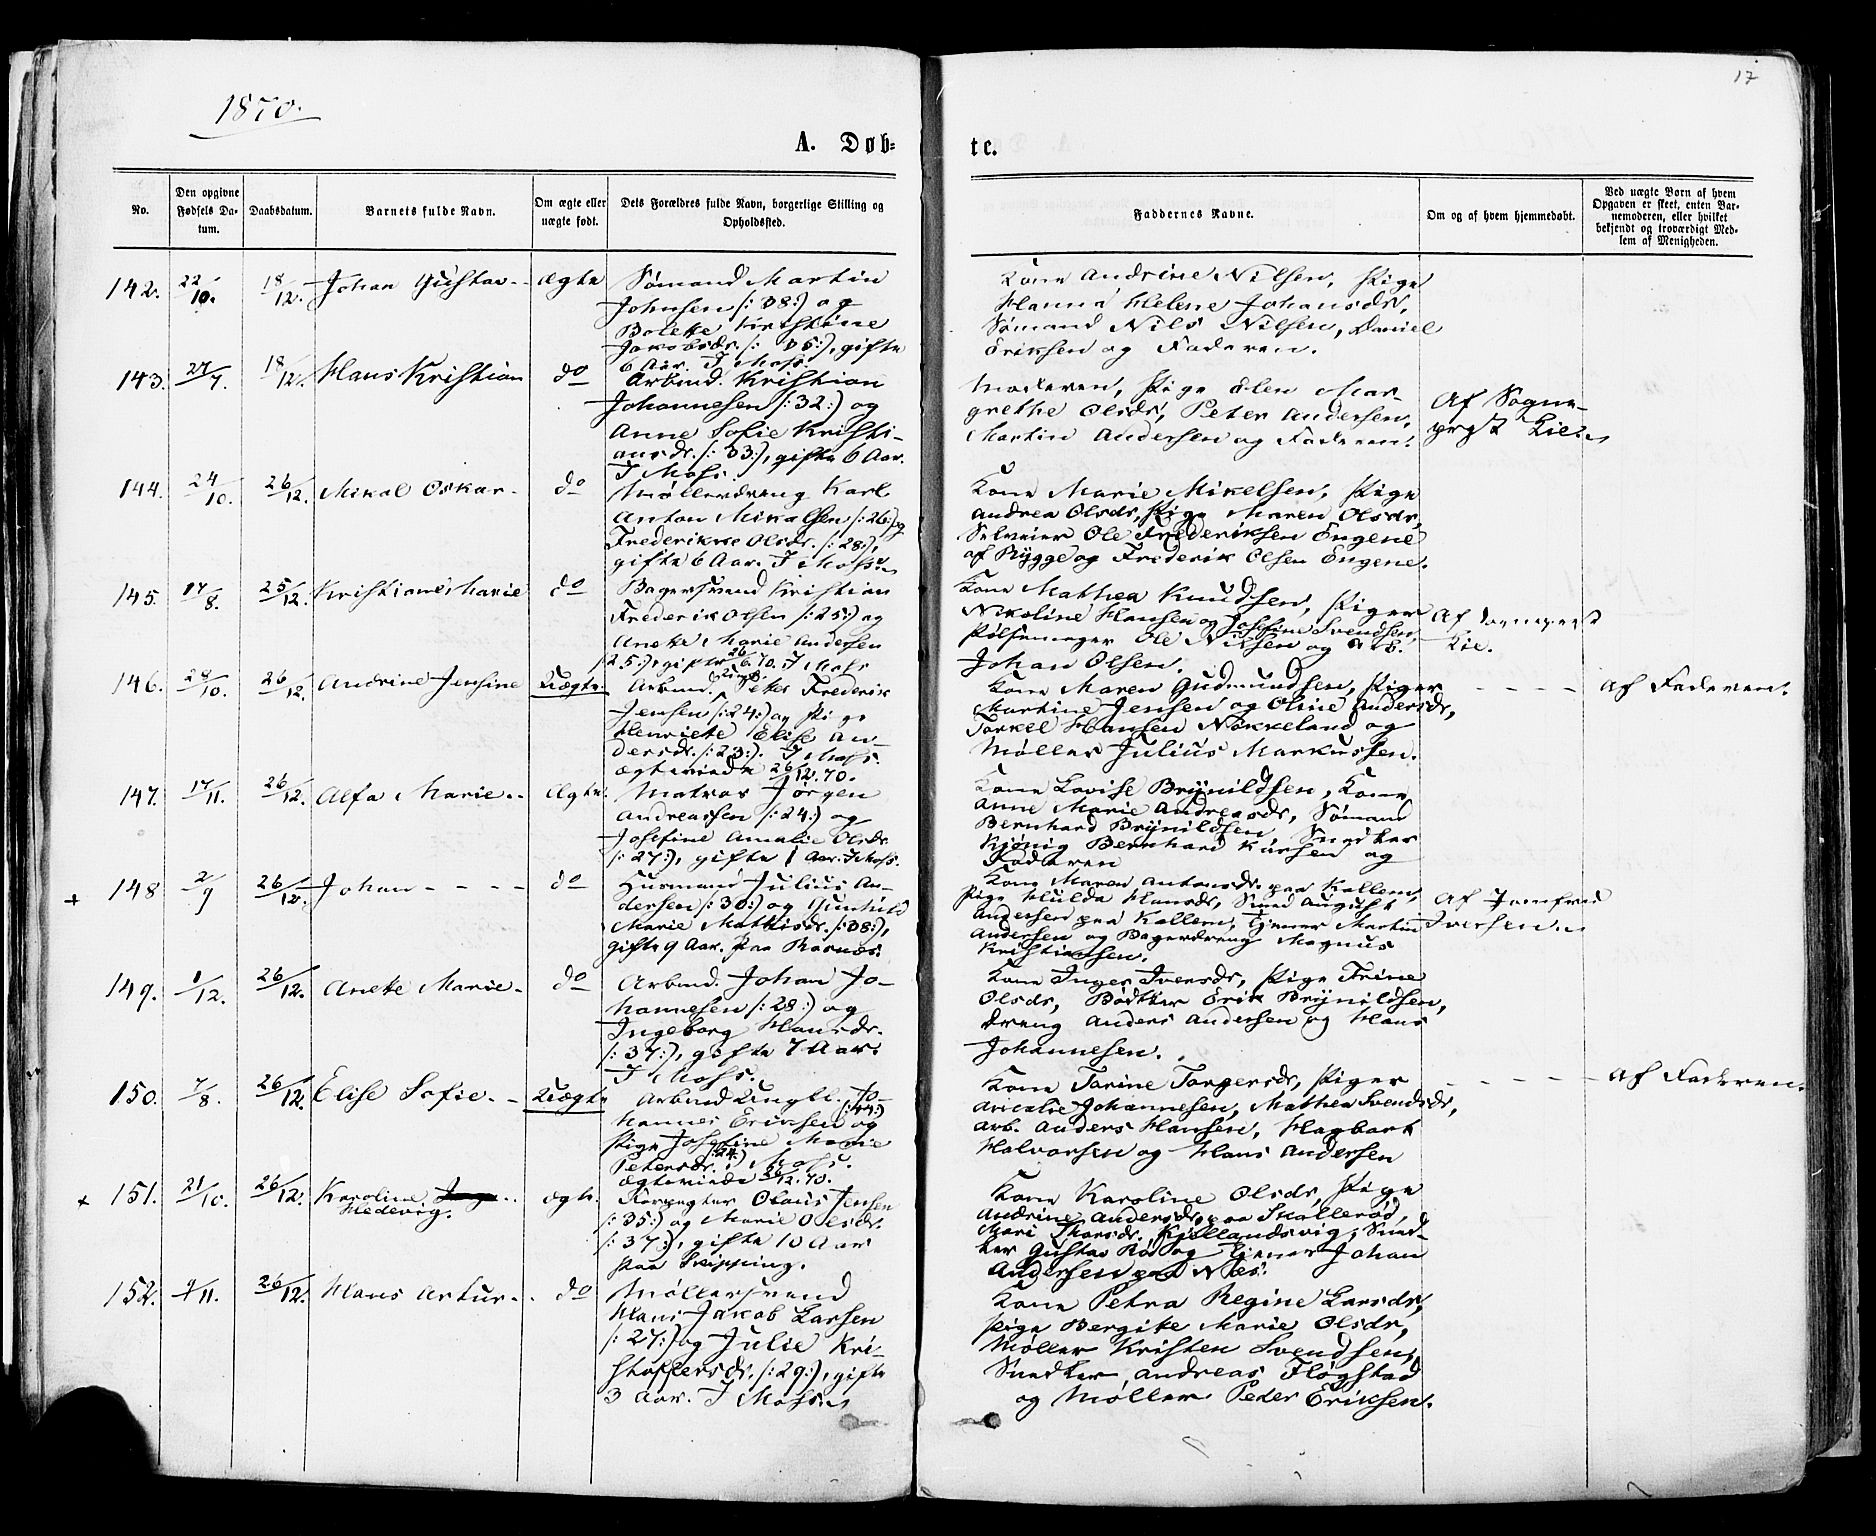 1870.
17
A. Døb-
te.
No.
Den opgivne
Fødsels Da-
tum.
Daabsdatum.
Barnets fulde Navn.
Om ægte eller
uægte født.
Dets Forældres fulde Navn, borgerlige Stilling og
Opholdssted.
Faddernes Navne.
Om og af hvem hjemmedøbt.
Ved uægte Børn af hvem
Opgaven er skeet, enten Bar-
nemoderen, eller hvilket
bekjendt og troværdigt Med-
lem af Menigheden.
142. 22/10. 18/12. Johan Gustav - - ægte
Sømand Martin
Johnsen (: 38:) og
Bolette Kristine
Jakobsdr. (: 35:), gifte
6 Aar. I Moss.
Kone Andrine Nilsen, Pige
Hanna Helene Johansdr,
Sømand Nils Nilsen, Daniel
Eriksen og Faderen.
143. 27/7. 18/12. Hans Kristian do
Arbmd. Kristian
Johannesen (: 32:) og
Anne Sofie Kristi-
ansdr. (: 33:), gifte 6 Aar.
I Moss.
Moderen, Pige Elen Mar-
grethe Olsdr, Peter Andersen,
Martin Andersen og Faderen.
Af Sogne-
prst Lie.
144. 24/10. 26/12. Mikal Oskar - do
Møllerdreng Karl
Anton Mikalsen (: 26:) og
Frederikke Olsdr. (: 28:),
gifte 6 Aar. I Moss.
Kone Marie Mikelsen, Pige
Andrea Olsdr, Pige Maren Olsdr,
Selveier Ole Frederiksen Engene
af Rygge og Frederik Olsen Engene.
145. 17/8. 25/12. Kristiane Marie do
Bagersvend Kristian
Frederik Olsen (: 25:) og
Anette Marie Andersen
(: 25:), gifte 26/6.70. I Moss
Kone Mathea Knudsen, Piger
Nikoline Hansen og Josefine Svendsen,
Pølsemager Ole Nilsen og Arb.
Johan Olsen.
Af Sognprst
Lie.
146. 28/10. 26/12. Andrine Jensine Uægte
Arbmd. Ungk. Peter Frederik
Jensen (: 24:) og Pige
Henriette Elise An-
dersdr. (: 23:). I Moss.
Ægteviede 26/12.70.
Kone Maren Gudmundsen, Piger
Martine Jensen og Oline Andersdr,
Torkel Hansen Nøkkeland og
Møller Julius Markussen.
- - - - af Faderen.
147. 17/11. 26/12. Alfa Marie - - Ægte.
Matros Jørgen
Andreassen (: 24:) og
Josefine Amalie Olsdr.
(: 27:), gifte 1 Aar. I Moss.
Kone Lovise Brynildsen, Kone
Anne Marie Andreasdr, Sømand
Bernhard Brynildsen, Snedker
Kjönig Bernhard Kursen og
Faderen
+ 148 2/9 26/12. Johan - - - - do
Husmand Julius An-
dersen (: 30:) og Gunhild
Marie Mathisdr. (: 38:),
gifte 9 Aar. Paa Rosnæs.
Kone Maren Antonsdr. paa Kallem,
Pige Hulda Hansdr, Smed August
Andersen paa Kallem, Tjener Martin
Andersen og Bagerdreng Magnus
Kristiansen.
Af Jomfru
Iversen.
149. 1/12. 26/12. Anette Marie - do
Arbmd. Johan Jo-
hannesen (: 28:) og
Ingeborg Hansdr.
(: 37:), gifte 7 Aar.
I Moss.
Kone Inger Iversdr, Pige Trine
Olsdr, Bødker Erik Brynildsen,
dreng Anders Andersen og Hans
Johannesen.
150. 7/8. 26/12. Elise Sofie - - Uægte
Arbmd Ungk. Jo-
hannes Eriksen (: 44:) og
Pige Josefine Marie
Petersdr. (: 24:) I Moss.
Ægteviede 26/12.70.
Kone Tarine Torgersdr, Piger
Amalie Johannesen, Mathea Svendsdr,
Arb. Anders Hansen, Hagbart
Halvorsen og Hans Andersen
- - - - af Faderen.
+ 151. 21/10. 26/12. Karoline
Hedevig. ægte.
Forpagter Olaus Jensen
(: 35:) og Marie Olsdr.
(: 37:), gifte 10 Aar
Paa Reipping.
Kone Karoline Olsdr, Pige
Andrine Andersdr, paa Skallerød,
Mari Thorsdr. Kjellandsvig, Sned-
ker Gustav Rød og Tjener Johan
Andersen paa Næs.
152. 9/11. 26/12. Hans Artur - - do
Møllersvend
Hans Jakob Larsen
(: 27:) og Julie Kri-
stoffersdr. (: 29:), gifte
3 Aar. I Moss.
Kone Petra Regine Larsdr,
Pige Bergite Marie Olsdr,
Møller Kristen Svendsen,
Snedker Andreas Fløgstad
og Møller Peder Eriksen.